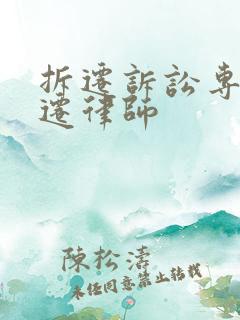 拆遷訴訟專
遷律師
陳松濤
未任同意禁止转载